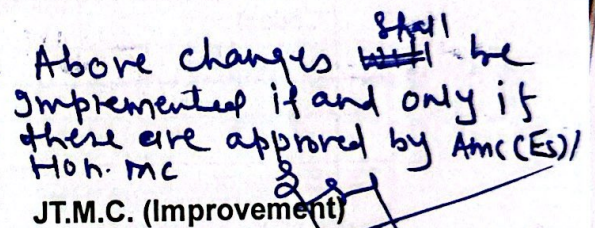 Above changes shall be
Implemented if and only if
these are approved by AMC (ES)/
Hon. MC
JT.M.C. (Improvement)